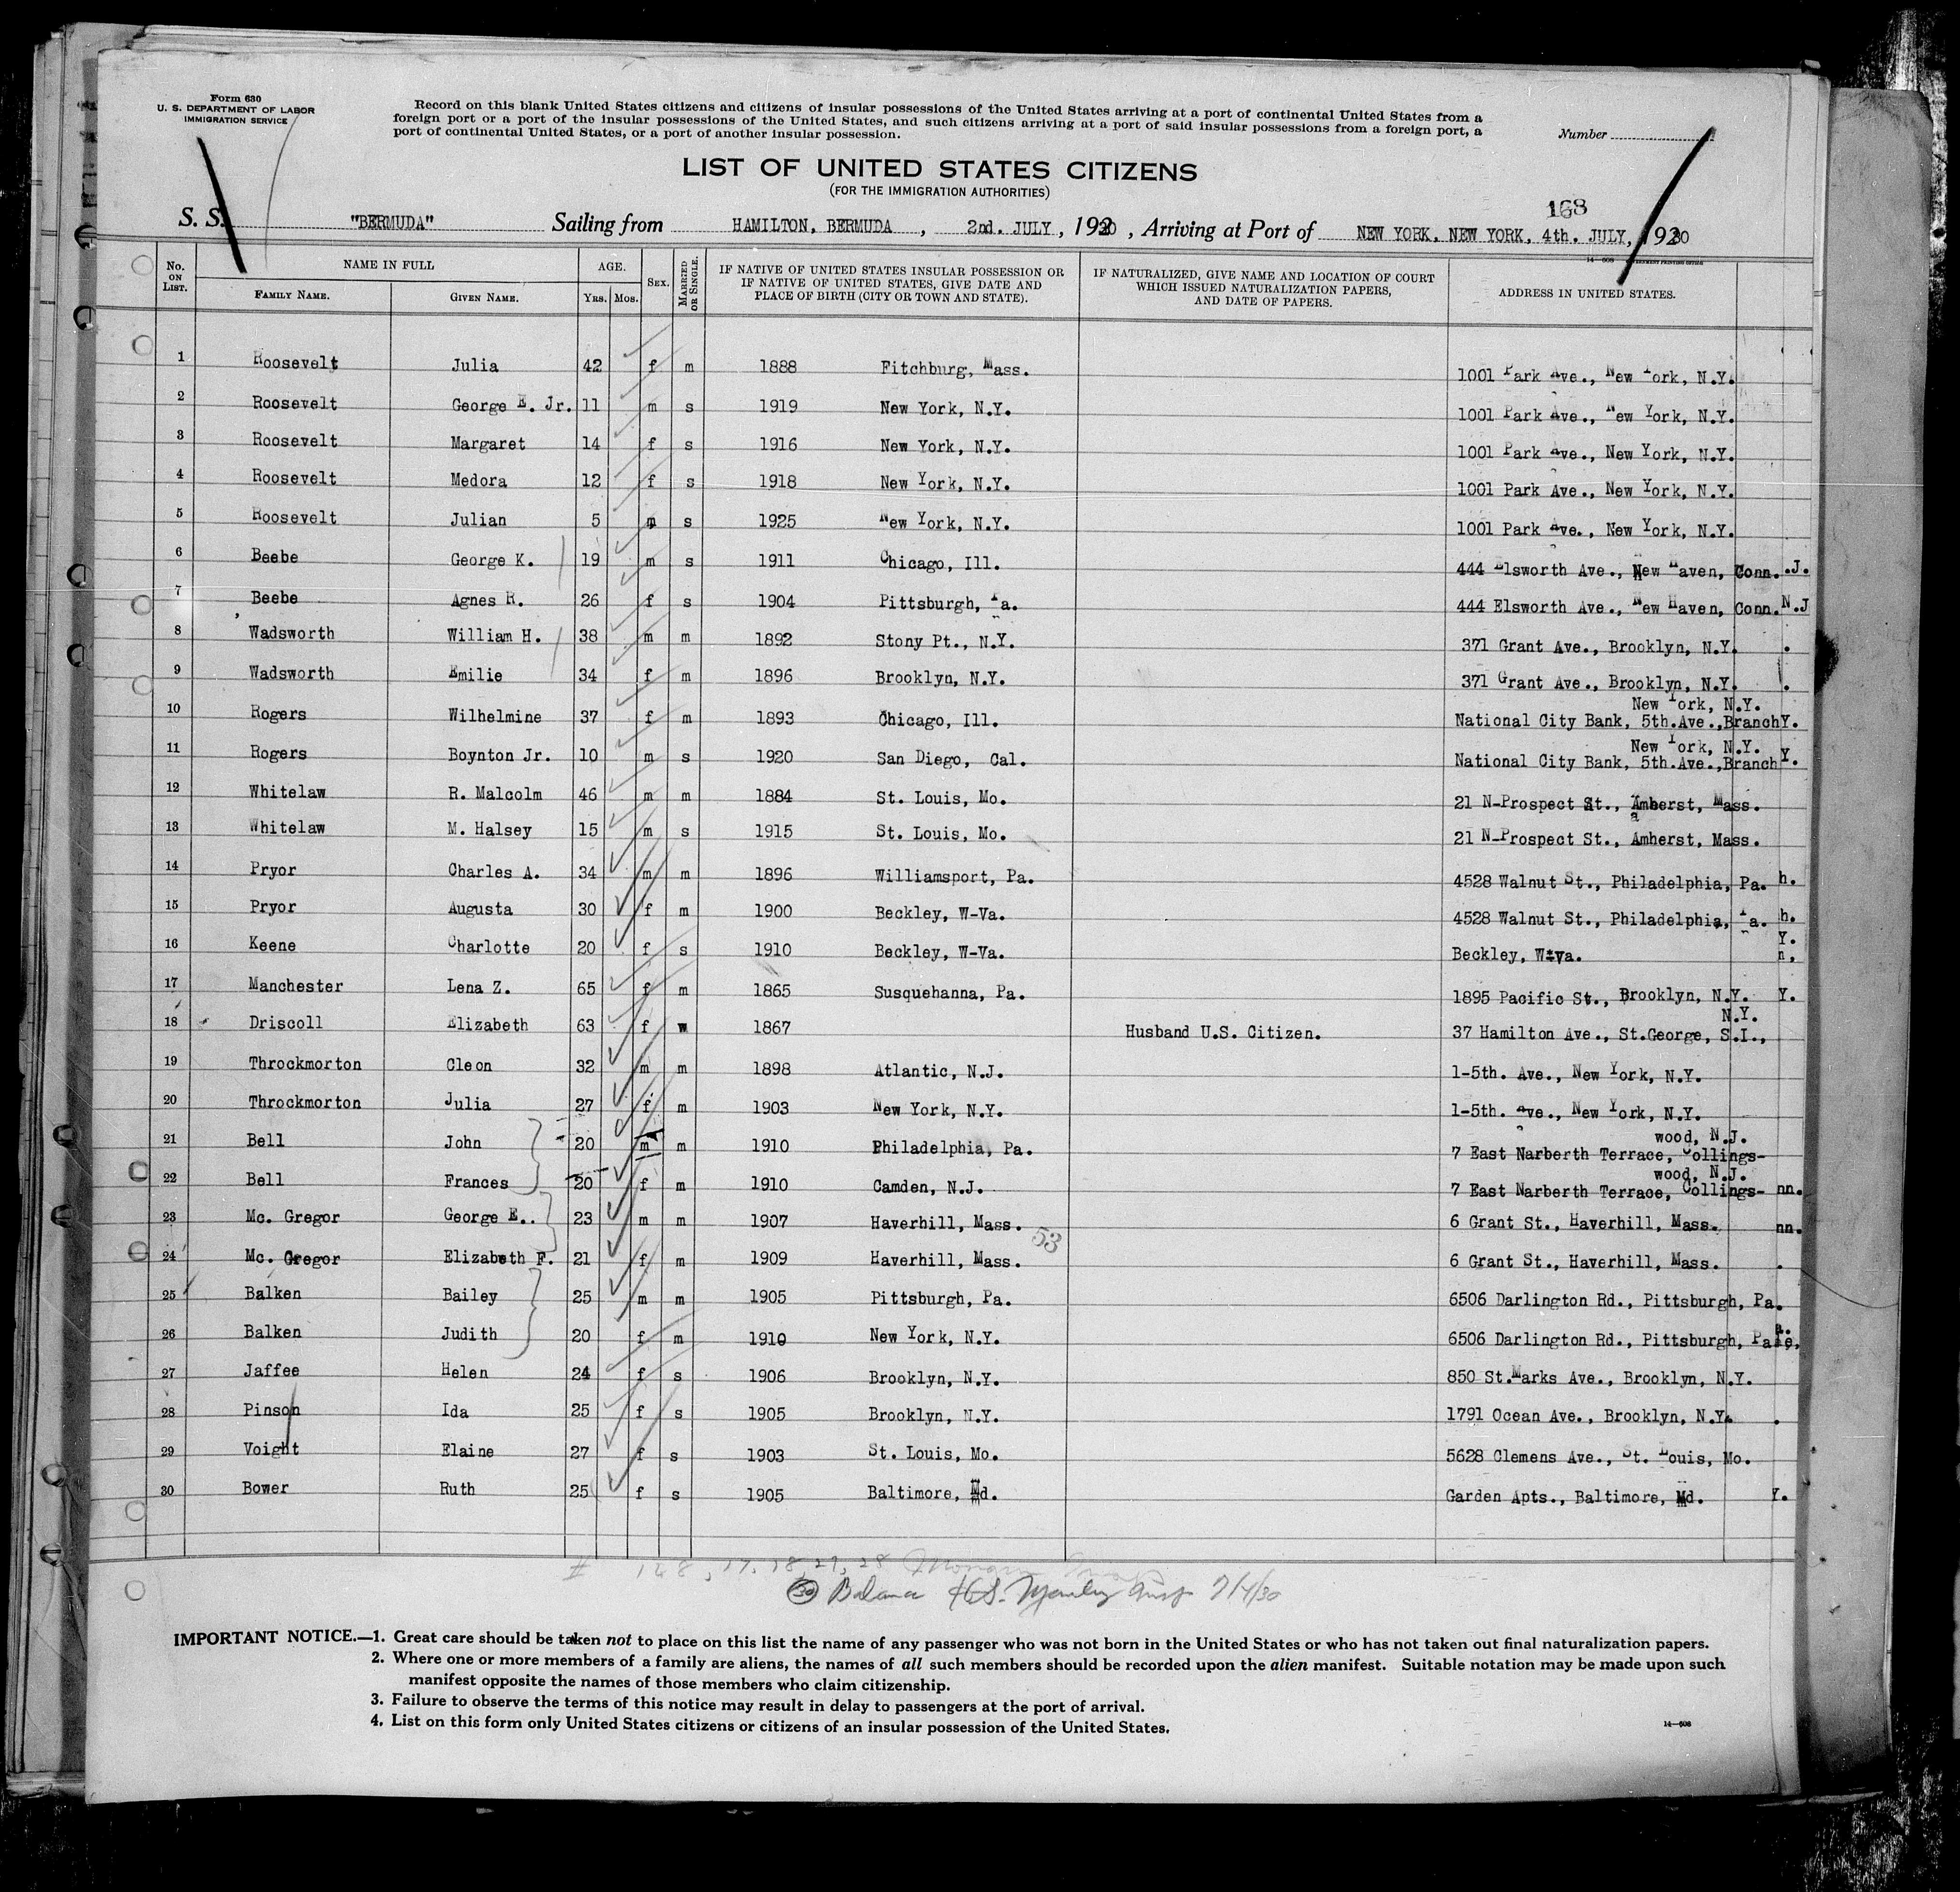 Form 630
U. S. DEPARTMENT OF LABOR
IMMIGRATION SERVICE
Record on this blank United States citizens and citizens of insular possessions of the United States arriving at a port of continental United States from a
foreign port or a port of the insular possessions of the United States, and such citizens arriving at a port of said insular possessions from a foreign port, a
port of continental United States, or a port of another insular possession.
Number
LIST OF UNITED STATES CITIZENS
(FOR THE IMMIGRATION AUTHORITIES)
168
S. S. "BERMUDA" Sailing from HAMILTON, BERMUDA , 2nd. JULY , 1930 , Arriving at Port of NEW YORK, NEW YORK, 4th. JULY, 1930
No. ON LIST. NAME IN FULL FAMILY NAME. GIVEN NAME. AGE. YRS. MOS. SEX. MARRIED OR SINGLE. IF NATIVE OF UNITED STATES INSULAR POSSESSION OR IF NATIVE OF UNITED STATES, GIVE DATE AND PLACE OF BIRTH (CITY OR TOWN AND STATE). IF NATURALIZED, GIVE NAME AND LOCATION OF COURT WHICH ISSUED NATURALIZATION PAPERS, AND DATE OF PAPERS. ADDRESS IN UNITED STATES.
1 Roosevelt Julia 42 f m 1888 Fitchburg, Mass. 1001 Park Ave., New York, N.Y.
2 Roosevelt George E. Jr. 11 m s 1919 New York, N.Y. 1001 Park Ave., New York, N.Y.
3 Roosevelt Margaret 14 f s 1916 New York, N.Y. 1001 Park Ave., New York, N.Y.
4 Roosevelt Medora 12 f s 1918 New York, N.Y. 1001 Park Ave., New York, N.Y.
5 Roosevelt Julian 5 m s 1925 New York, N.Y. 1001 Park Ave., New York, N.Y.
6 Beebe George K. 19 m s 1911 Chicago, Ill. 444 Elsworth Ave., New Haven, Conn. .J.
7 Beebe Agnes R. 26 f s 1904 Pittsburgh, Pa. 444 Elsworth Ave., New Haven, Conn. N.J
8 Wadsworth William H. 38 m m 1892 Stony Pt., N.Y. 371 Grant Ave., Brooklyn, N.Y.
9 Wadsworth Emilie 34 f m 1896 Brooklyn, N.Y. 371 Grant Ave., Brooklyn, N.Y.
10 Rogers Wilhelmine 37 f m 1893 Chicago, Ill. New York, N.Y. National City Bank, 5th.Ave.,Branch Y.
11 Rogers Boynton Jr. 10 m s 1920 San Diego, Cal. New York, N.Y. National City Bank, 5th.Ave.,Branch Y.
12 Whitelaw R. Malcolm 46 m m 1884 St. Louis, Mo. 21 N-Prospect St., Amherst, Mass.
13 Whitelaw M. Halsey 15 m s 1915 St. Louis, Mo. 21 N-Prospect St., Amherst, Mass.
14 Pryor Charles A. 34 m m 1896 Williamsport, Pa. 4528 Walnut St., Philadelphia, Pa. h.
15 Pryor Augusta 30 f m 1900 Beckley, W-Va. 4528 Walnut St., Philadelphia, Pa. h.
16 Keene Charlotte 20 f s 1910 Beckley, W-Va. Beckley, W-Va. Y. n.
17 Manchester Lena Z. 65 f m 1865 Susquehanna, Pa. 1895 Pacific St., Brooklyn, N.Y. Y.
18 Driscoll Elizabeth 63 f w 1867 Husband U.S. Citizen. N.Y. 37 Hamilton Ave., St.George, S.I.,
19 Throckmorton Cleon 32 m m 1898 Atlantic, N.J. 1-5th. Ave., New York, N.Y.
20 Throckmorton Julia 27 f m 1903 New York, N.Y. 1-5th. Ave., New York, N.Y.
21 Bell John 20 m m 1910 Philadelphia, Pa. wood, N.J. 7 East Narberth Terrace, Collings-
22 Bell Frances 20 f m 1910 Camden, N.J. wood, N.J. 7 East Narberth Terrace, Collings- nn.
23 Mc. Gregor George E.. 23 m m 1907 Haverhill, Mass. 6 Grant St., Haverhill, Mass. nn.
53
24 Mc. Gregor Elizabeth F. 21 f m 1909 Haverhill, Mass. 6 Grant St., Haverhill, Mass.
25 Balken Bailey 25 m m 1905 Pittsburgh, Pa. 6506 Darlington Rd., Pittsburgh, Pa.
26 Balken Judith 20 f m 1910 New York, N.Y. 6506 Darlington Rd., Pittsburgh, Pa.
27 Jaffee Helen 24 f s 1906 Brooklyn, N.Y. 850 St.Marks Ave., Brooklyn, N.Y.
28 Pinson Ida 25 f s 1905 Brooklyn, N.Y. 1791 Ocean Ave., Brooklyn, N.Y.
29 Voight Elaine 27 f s 1903 St. Louis, Mo. 5628 Clemens Ave., St. Louis, Mo.
30 Bower Ruth 25 f s 1905 Baltimore, Md. Garden Apts., Baltimore, Md. Y.
30 Balance 7/4/30
IMPORTANT NOTICE.—1. Great care should be taken not to place on this list the name of any passenger who was not born in the United States or who has not taken out final naturalization papers.
2. Where one or more members of a family are aliens, the names of all such members should be recorded upon the alien manifest. Suitable notation may be made upon such
manifest opposite the names of those members who claim citizenship.
3. Failure to observe the terms of this notice may result in delay to passengers at the port of arrival.
4. List on this form only United States citizens or citizens of an insular possession of the United States.
14—608